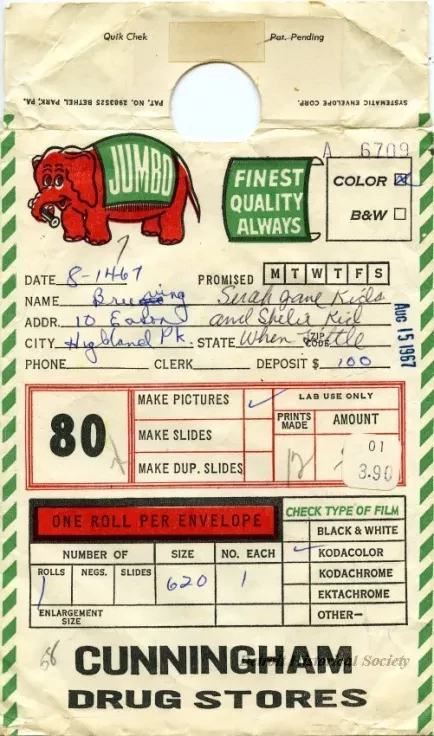 Quik Chek Pat. Pending
SYSTEMATIC ENVELOPE CORP. PAT. NO. 2983525 BETHEL PARK, PA.
A 6709
JUMBO
FINEST
QUALITY
ALWAYS
COLOR
B&W
DATE 8-1467 PROMISED M T W T F S
NAME Sarah Jane Kids
ADDR. 10 Eason and Shiler Kid
CITY Highland Pk. STATE When ZIP CODE
PHONE CLERK DEPOSIT $ 100
Aug 15 1967
80
MAKE PICTURES LAB USE ONLY
MAKE SLIDES PRINTS MADE AMOUNT
MAKE DUP. SLIDES 12 $
01
3.90
ONE ROLL PER ENVELOPE
CHECK TYPE OF FILM
NUMBER OF SIZE NO. EACH
ROLLS NEGS. SLIDES
1 620 1
ENLARGEMENT SIZE
BLACK & WHITE
KODACOLOR
KODACHROME
EKTACHROME
OTHER—
68
CUNNINGHAM
DRUG STORES
Detroit Historical Society